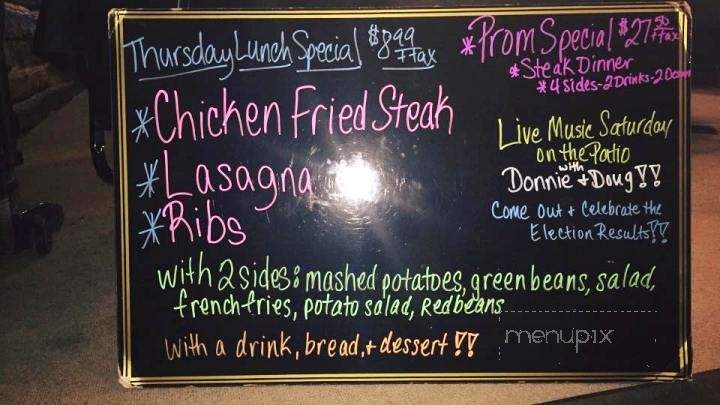 Thursday Lunch Special $8.99 + Tax
*Chicken Fried Steak
*Lasagna
*Ribs
*Prom Special $27.50 + Tax
*Steak Dinner
*4 Sides-2 Drinks-2 Dess
Live Music Saturday
on the Patio
with
Donnie + Doug!!
Come Out + Celebrate the
Election Results!!
with 2 sides: mashed potatoes, green beans, salad,
french fries, potato salad, Red beans
with a drink, bread, + dessert!!
menupix